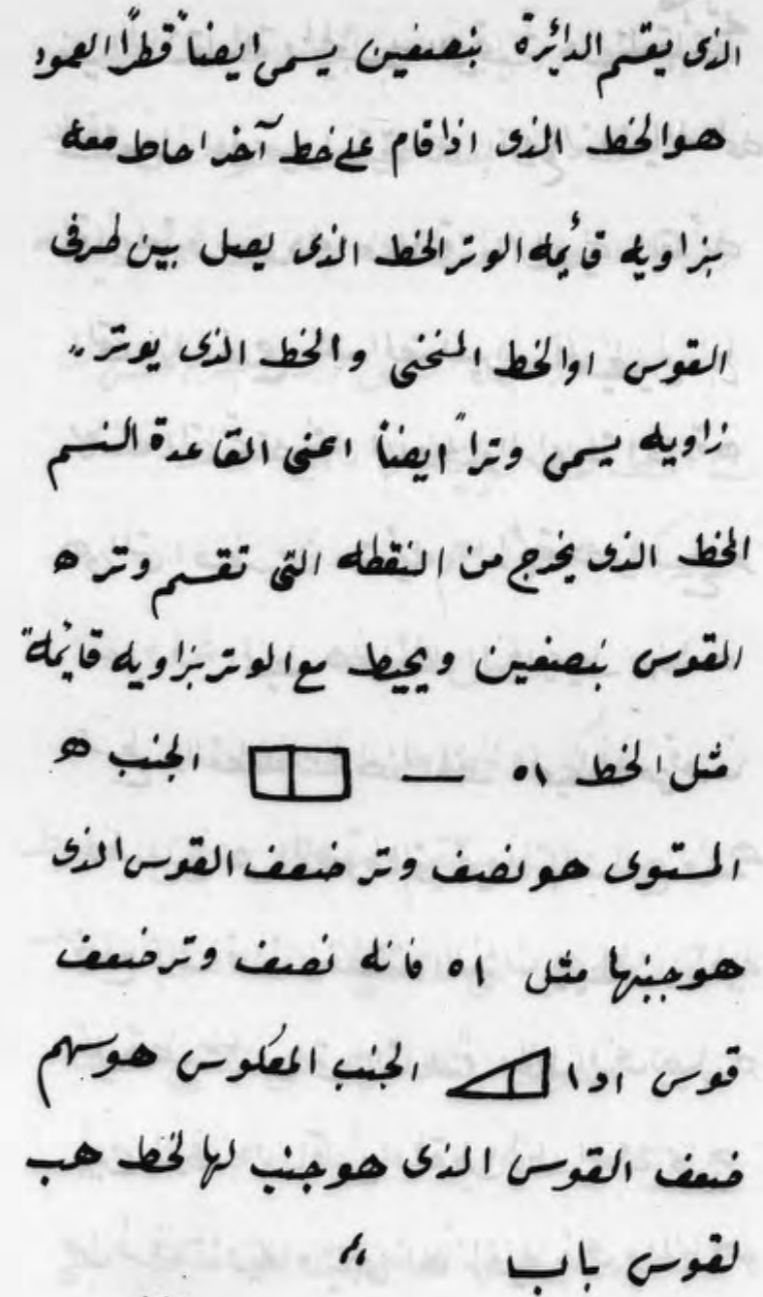 الذى يقسم الدائرة بنصفين يسمى ايضاً قطرًا العمود
هو الخط الذى اذا قام على خط آخر احاط معه
بزاويه قائمه الوتر الخط الذى يصل بين طرفى
القوس او الخط المنحنى والخط الذى يوتر
زاويه يسمى وتراً ايضاً اعنى القاعدة السهم
الخط الذى يخرج من النقطه التى تقسم وتر ه
القوس بنصفين ويحيط مع الوتر بزاويه قائمة
مثل الخط ٥١ — الجنب ه
المستوى هو نصف وتر ضعف القوس الذى
هو جنبها مثل ٥١ فانه نصف وتر ضعف
قوس ادا الجنب المعكوس هو سهم
ضعف القوس الذى هو جنب لها لخط هب
لقوس باب